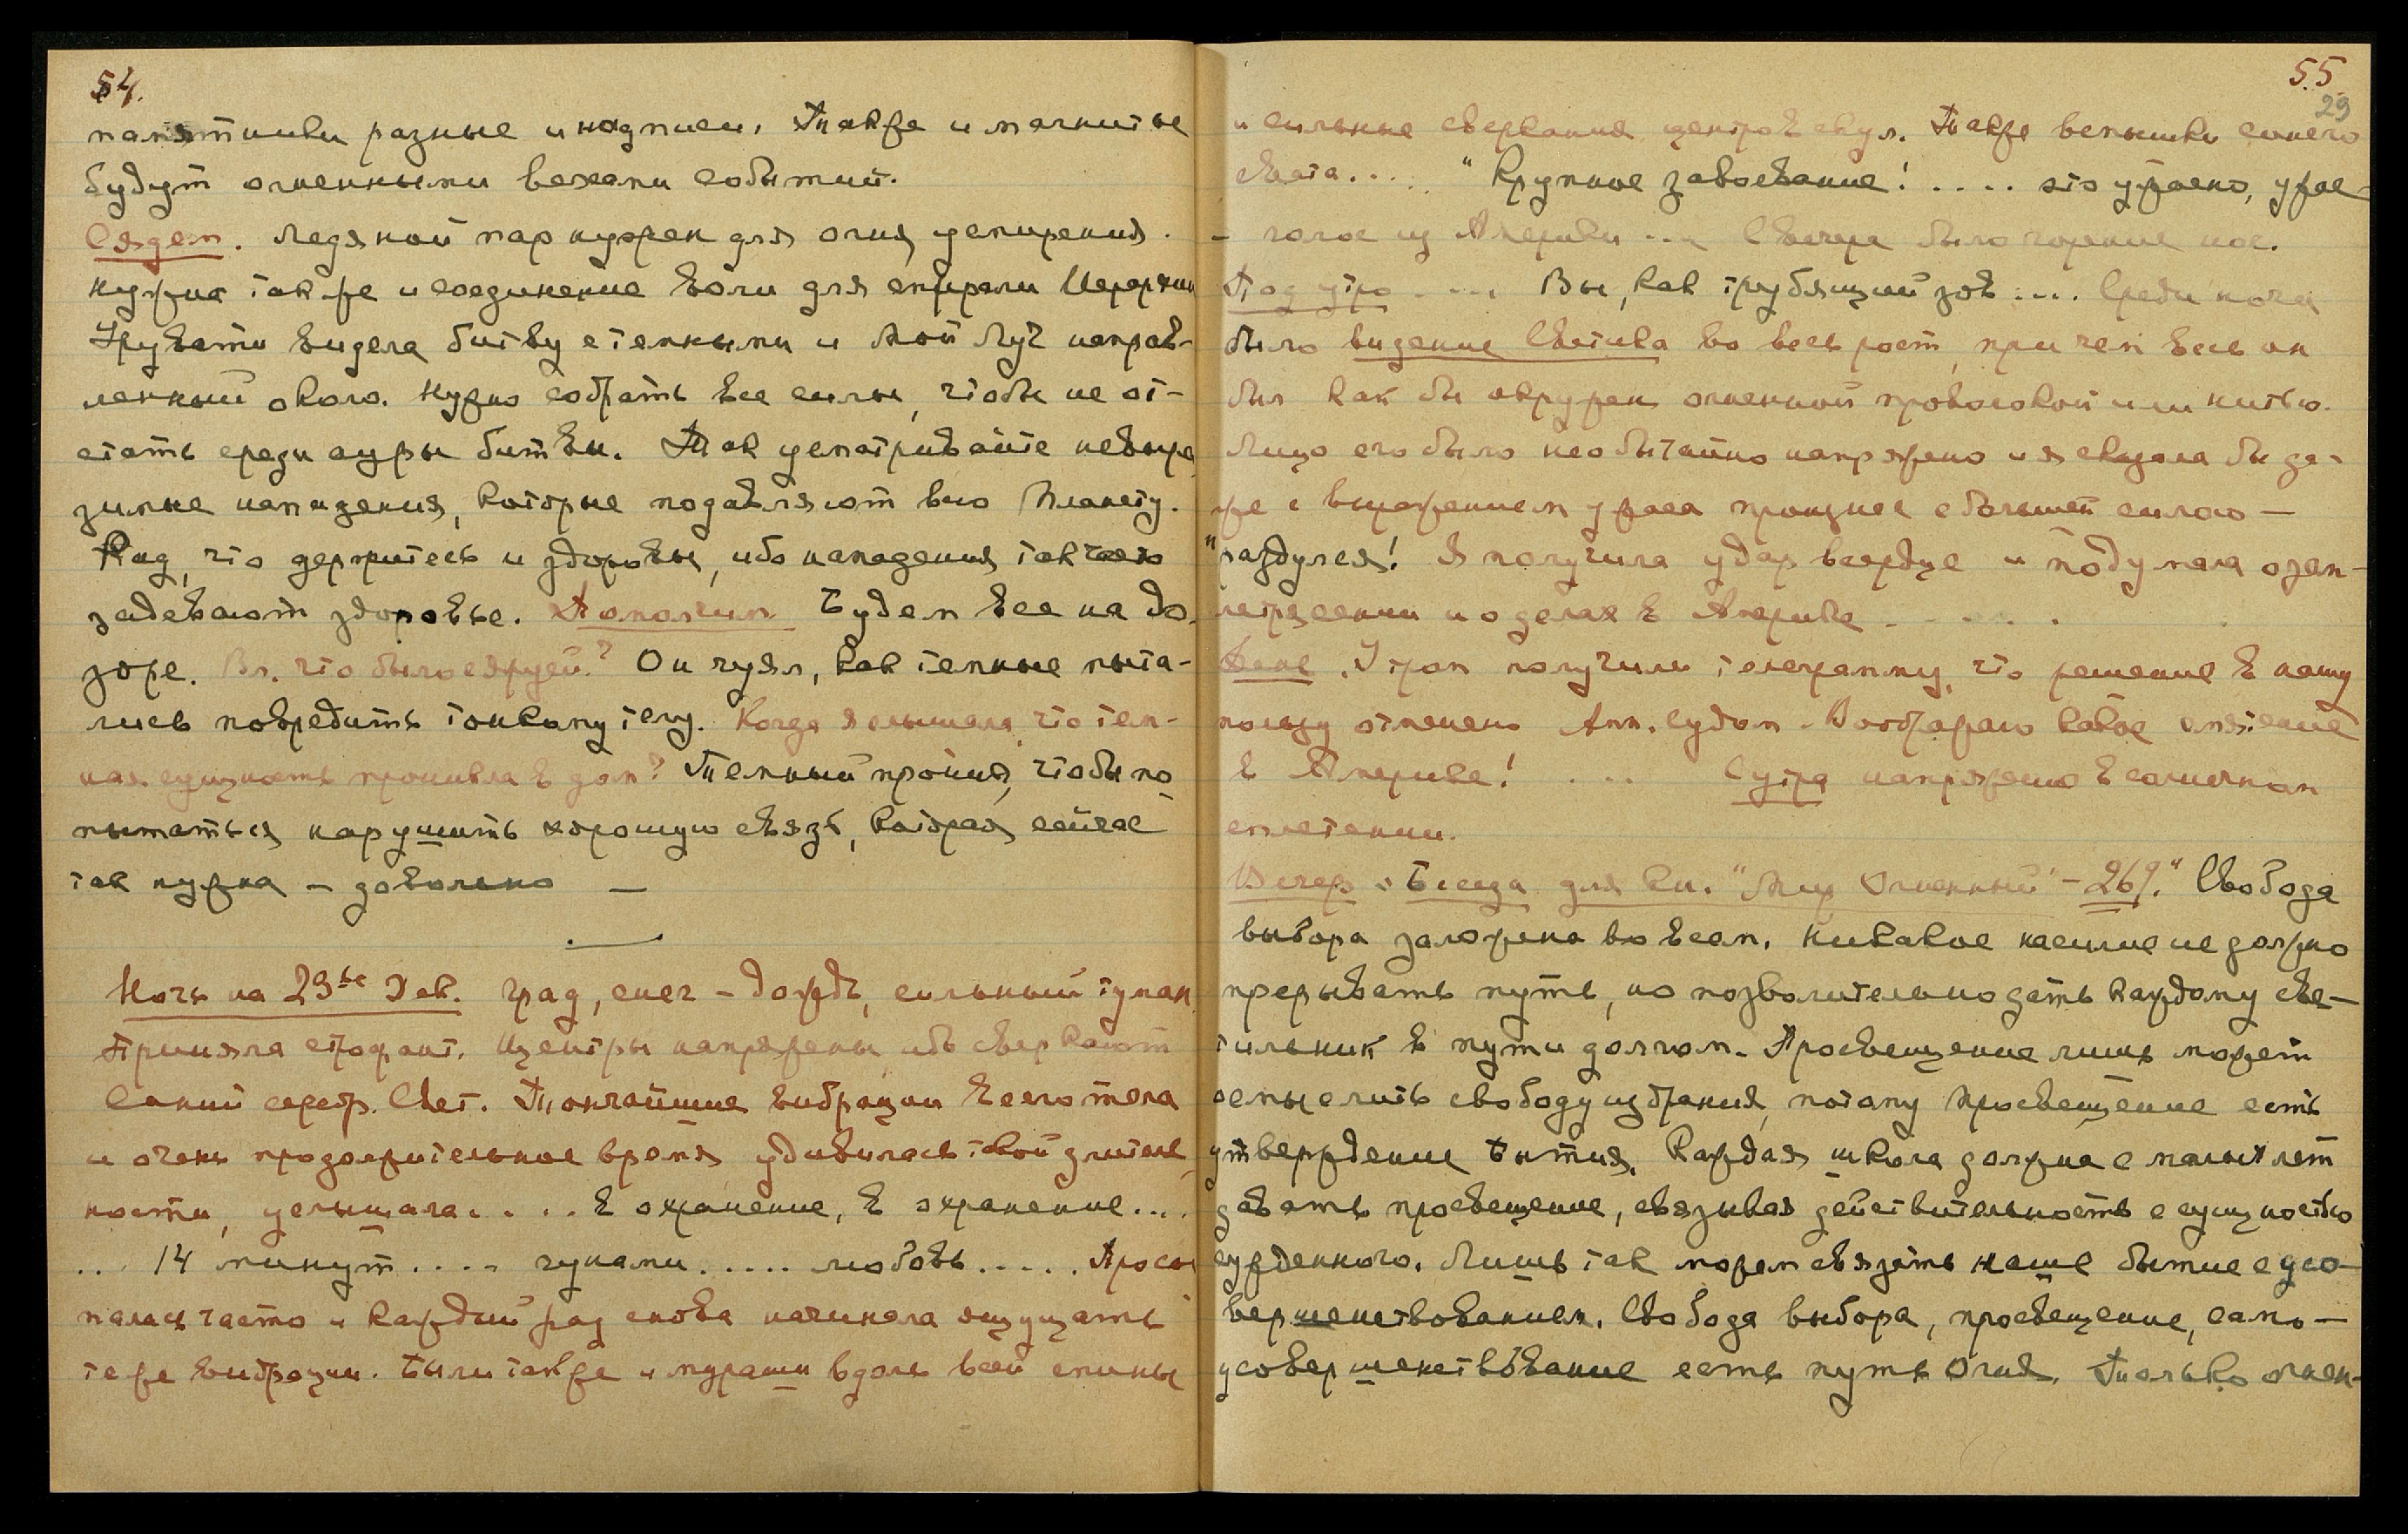 54.
памятники разные и надписи. Также и магниты
будут огненными вехами событий.
Сядем. Ледяной пар нужен для огня усмирения.
Нужна также и соединение воли для спирали Иерархии
Урусвати видела битву с темными и Мой Луч направ-
ленный около. Нужно собрать все силы, чтобы не от-
стать среди ауры битвы. Так усматривайте невыра
зимые нападения, которые подавляют всю Планету.
Рад, что держитесь и здоровы, ибо нападения также
задевают здоровье. Помолчим Будем все на до-
зоре. Вл. что было с Яруей? Он чуял, как темные пыта-
лись повредить тонкому телу. Когда я слышала, что тем-
ная сущность проникла в дом? Темный проник, чтобы по
пытаться нарушить хорошую связь, которая сейчас
так нужна – довольно –
Ночь на 23ье Янв. град, снег – дождь, сильный туман
Приняла строфант. Центры напряжены ибо сверкают
Синий серебр. Свет. Тончайшие вибрации всего тела
и очень продолжительное время удивилась такой длитель
ности, услышала.... в охранение, в охранение...
... 14 минут.... чунами..... любовь..... Просы
палась часто и каждый раз снова начинала ощущать
те же вибрации. Были также и мураши вдоль всей спины
55
29
и сильные сверкания центров скул. Также вспышки синего
света..... "Крупное завоевание!.... это ужасно, ужас-
– голос из Америки.... Свечера было горение ног.
Под утро.... Вы, как трубящий зов.... Среди ночи
было видение Светика во весь рост, при чем весь он
был как бы окружен огненной проволокой или нитью.
Лицо его было необычайно напряжено и я сказала бы да-
же с выражением ужаса произнес с большей силою –
"раздулся! Я получила удар в сердце и подумала о зем-
летрясении и о делах в Америке......
День. Утром получили телеграмму, что решение в нашу
пользу отменено Апп. судом. Воображаю какое смятение
в Америке!.... Сутра напряжено в солнечном
сплетении.
Вечер. Беседа для Кн. "Мир Огненный" – 269." Свобода
выбора заложена во всем. Никакое насилие не должно
прерывать путь, но позволительно дать каждому све-
тильник в пути долгом. Просвещение лишь может
осмыслить свободу избрания, потому просвещение есть
утверждение Бытия. Каждая школа должна с малых лет
давать просвещение, связывая действительность с сущностью
сужденного. Лишь так можем связать наше бытие с усо-
вершенствованием. Свобода выбора, просвещение, само-
усовершенствование есть путь Огня. Только огнен-